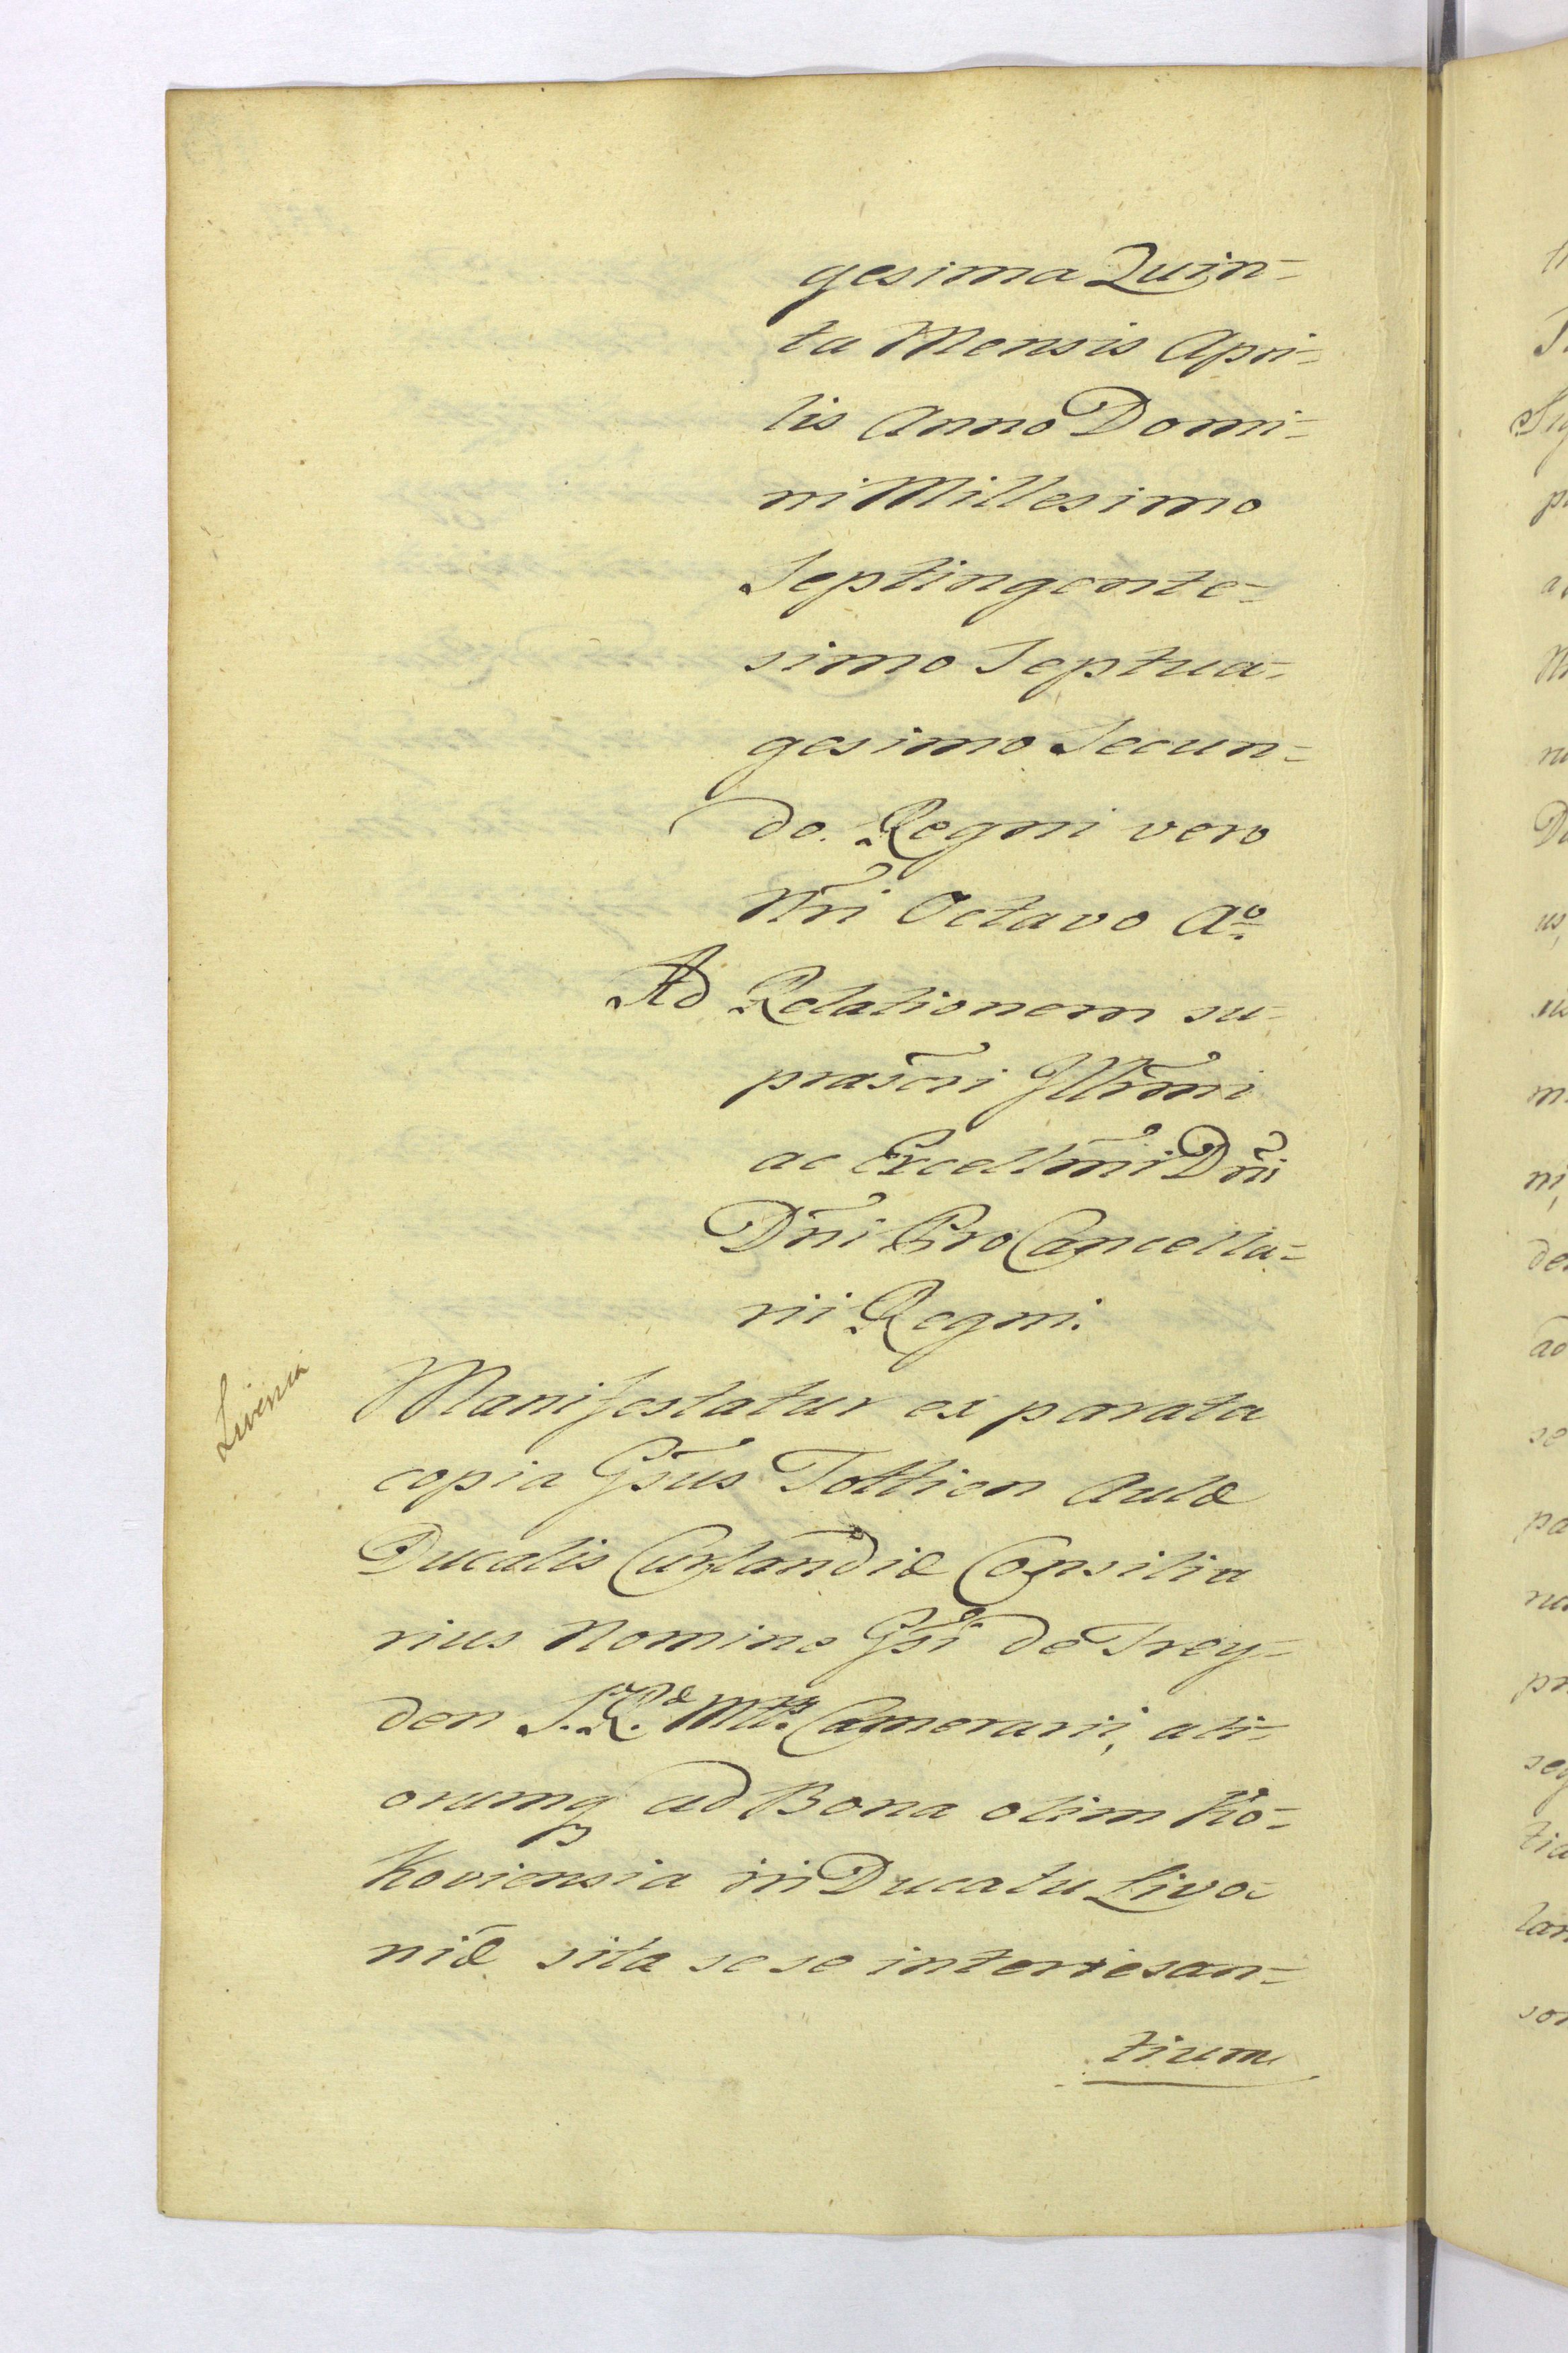 gesima Quin=
ta Mensis Apri=
lis Anno Domi=
ni Millesimo
Septingente=
simo Septua=
gesimo Secun=
do. Regni vero
Nri Octavo Aº.
Ad Relationem su=
prascri Illrmi
ac Excellmi Dni
Dni Pro Cancella=
rii Regni.
Livonia
Manifestatur ex parata
copia Gsus Tottien Aulæ
Ducalis Curlandiæ Consilia
rius Nomine Gsi de Trey=
den S. R. Mttis Camerarii, ali=
orumq ad Bona olim Kro=
Koviensia in Ducatu Livo=
niæ sita sese interesan=
tium